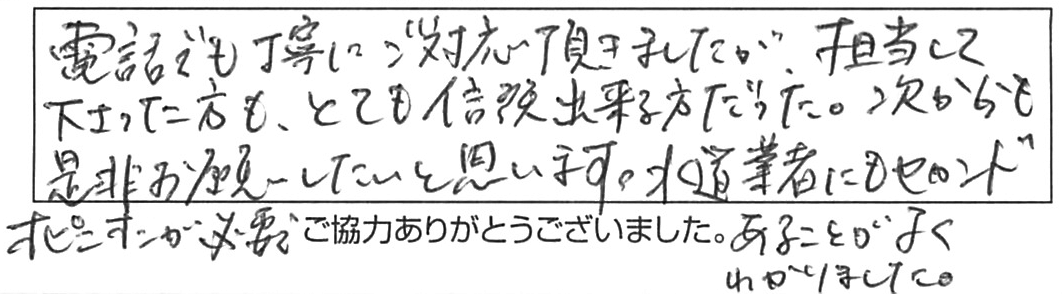 電話でも丁寧にご対応頂きましたが、担当して
下さった方も、とても信頼出来る方だった。次からも
是非お願いしたいと思います。水道業者にもセカンド
オピニオンが必要で ご協力ありがとうございました。 あることがよく
わかりました。